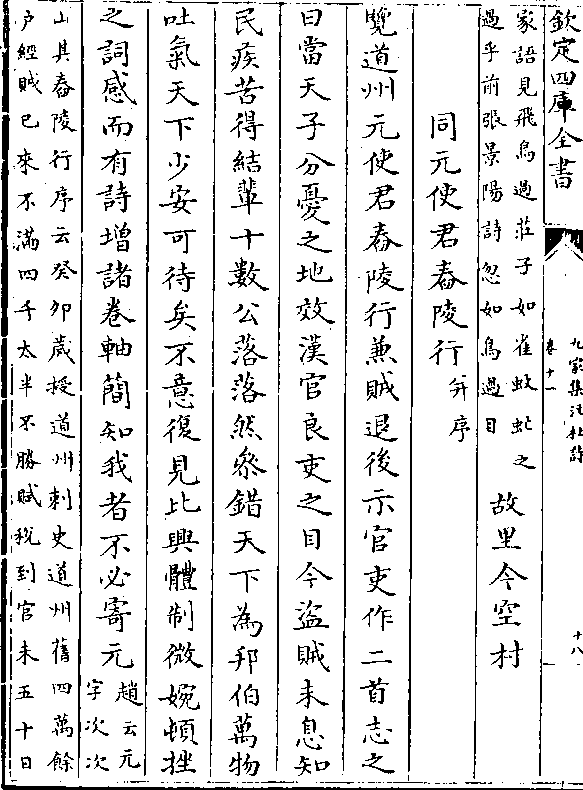 欽定四庫全書
九家集注杜詩
卷十一
十八
家語見飛鳥過莊子如雀蚊虻之
過乎前張景陽詩忽如鳥過目
故里今空村
同元使君舂陵行并序
覽道州元使君舂陵行兼賊退後示官吏作二首志之
曰當天子分憂之地效漢官良吏之目今盜賊未息知
民疾苦得結輩十數公落落然參錯天下為邦伯萬物
吐氣天下少安可待矣不意復見比興體制微婉頓挫
之詞感而有詩增諸卷軸簡知我者不必寄元
趙云元
字次次
山其舂陵行序云癸卯歲授道州刺史道州舊四萬餘
戶經賊已來不滿四千太半不勝賦稅到官未五十日